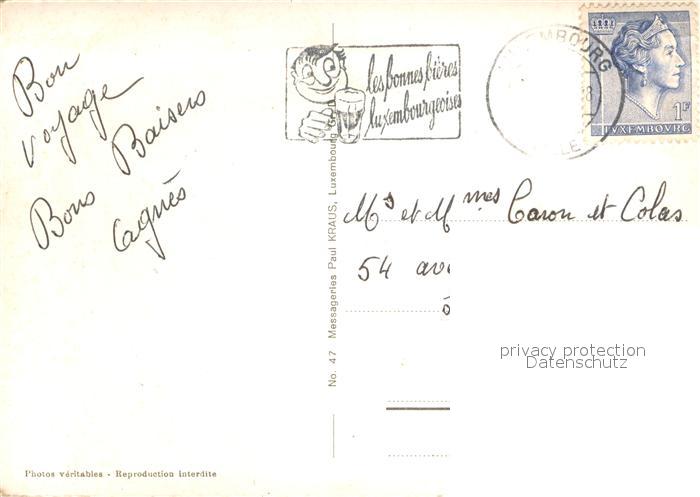 Bon
voyage
Bons Baisers
Agnès
les bonnes bières
luxembourgeoises
LUXEMBOURG
1F
LUXEMBOURG
Ms et Mmes Caron et Colas
54 av
privacy protection
Datenschutz
No. 47 Messageries Paul KRAUS, Luxembourg
Photos véritables - Reproduction interdite